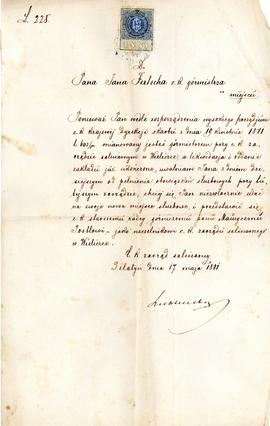 L. 228.
D.
Pana Jana Fritscha c. k. górmistrza
w miejscu
Ponieważ Pan wedle rozporządzenia wysokiego
c. k. Krajowej Dyrekcji Skarbu z dnia 19 Kwietnia 1881
mianowany jesteś górmistrzem przy c. k. za-
rządzie salinarnym w Wieliczce, a likwidacja i oddanie
zakładu już ukończone, uwalniam Pana z dniem dzi-
siejszym od pełnienia obowiązków służbowych przy tu-
tejszym zarządzie, chciej się Pan niezwłocznie udać
na swoje nowe miejsce służbowe, i przedstawić się
c. k. starszemu radcy górniczemu panu
jako naczelnikowi c. k. zarządu salinarnego
w Wieliczce.
C. k. zarząd salinarny
Delatyn dnia 17 maja 1881